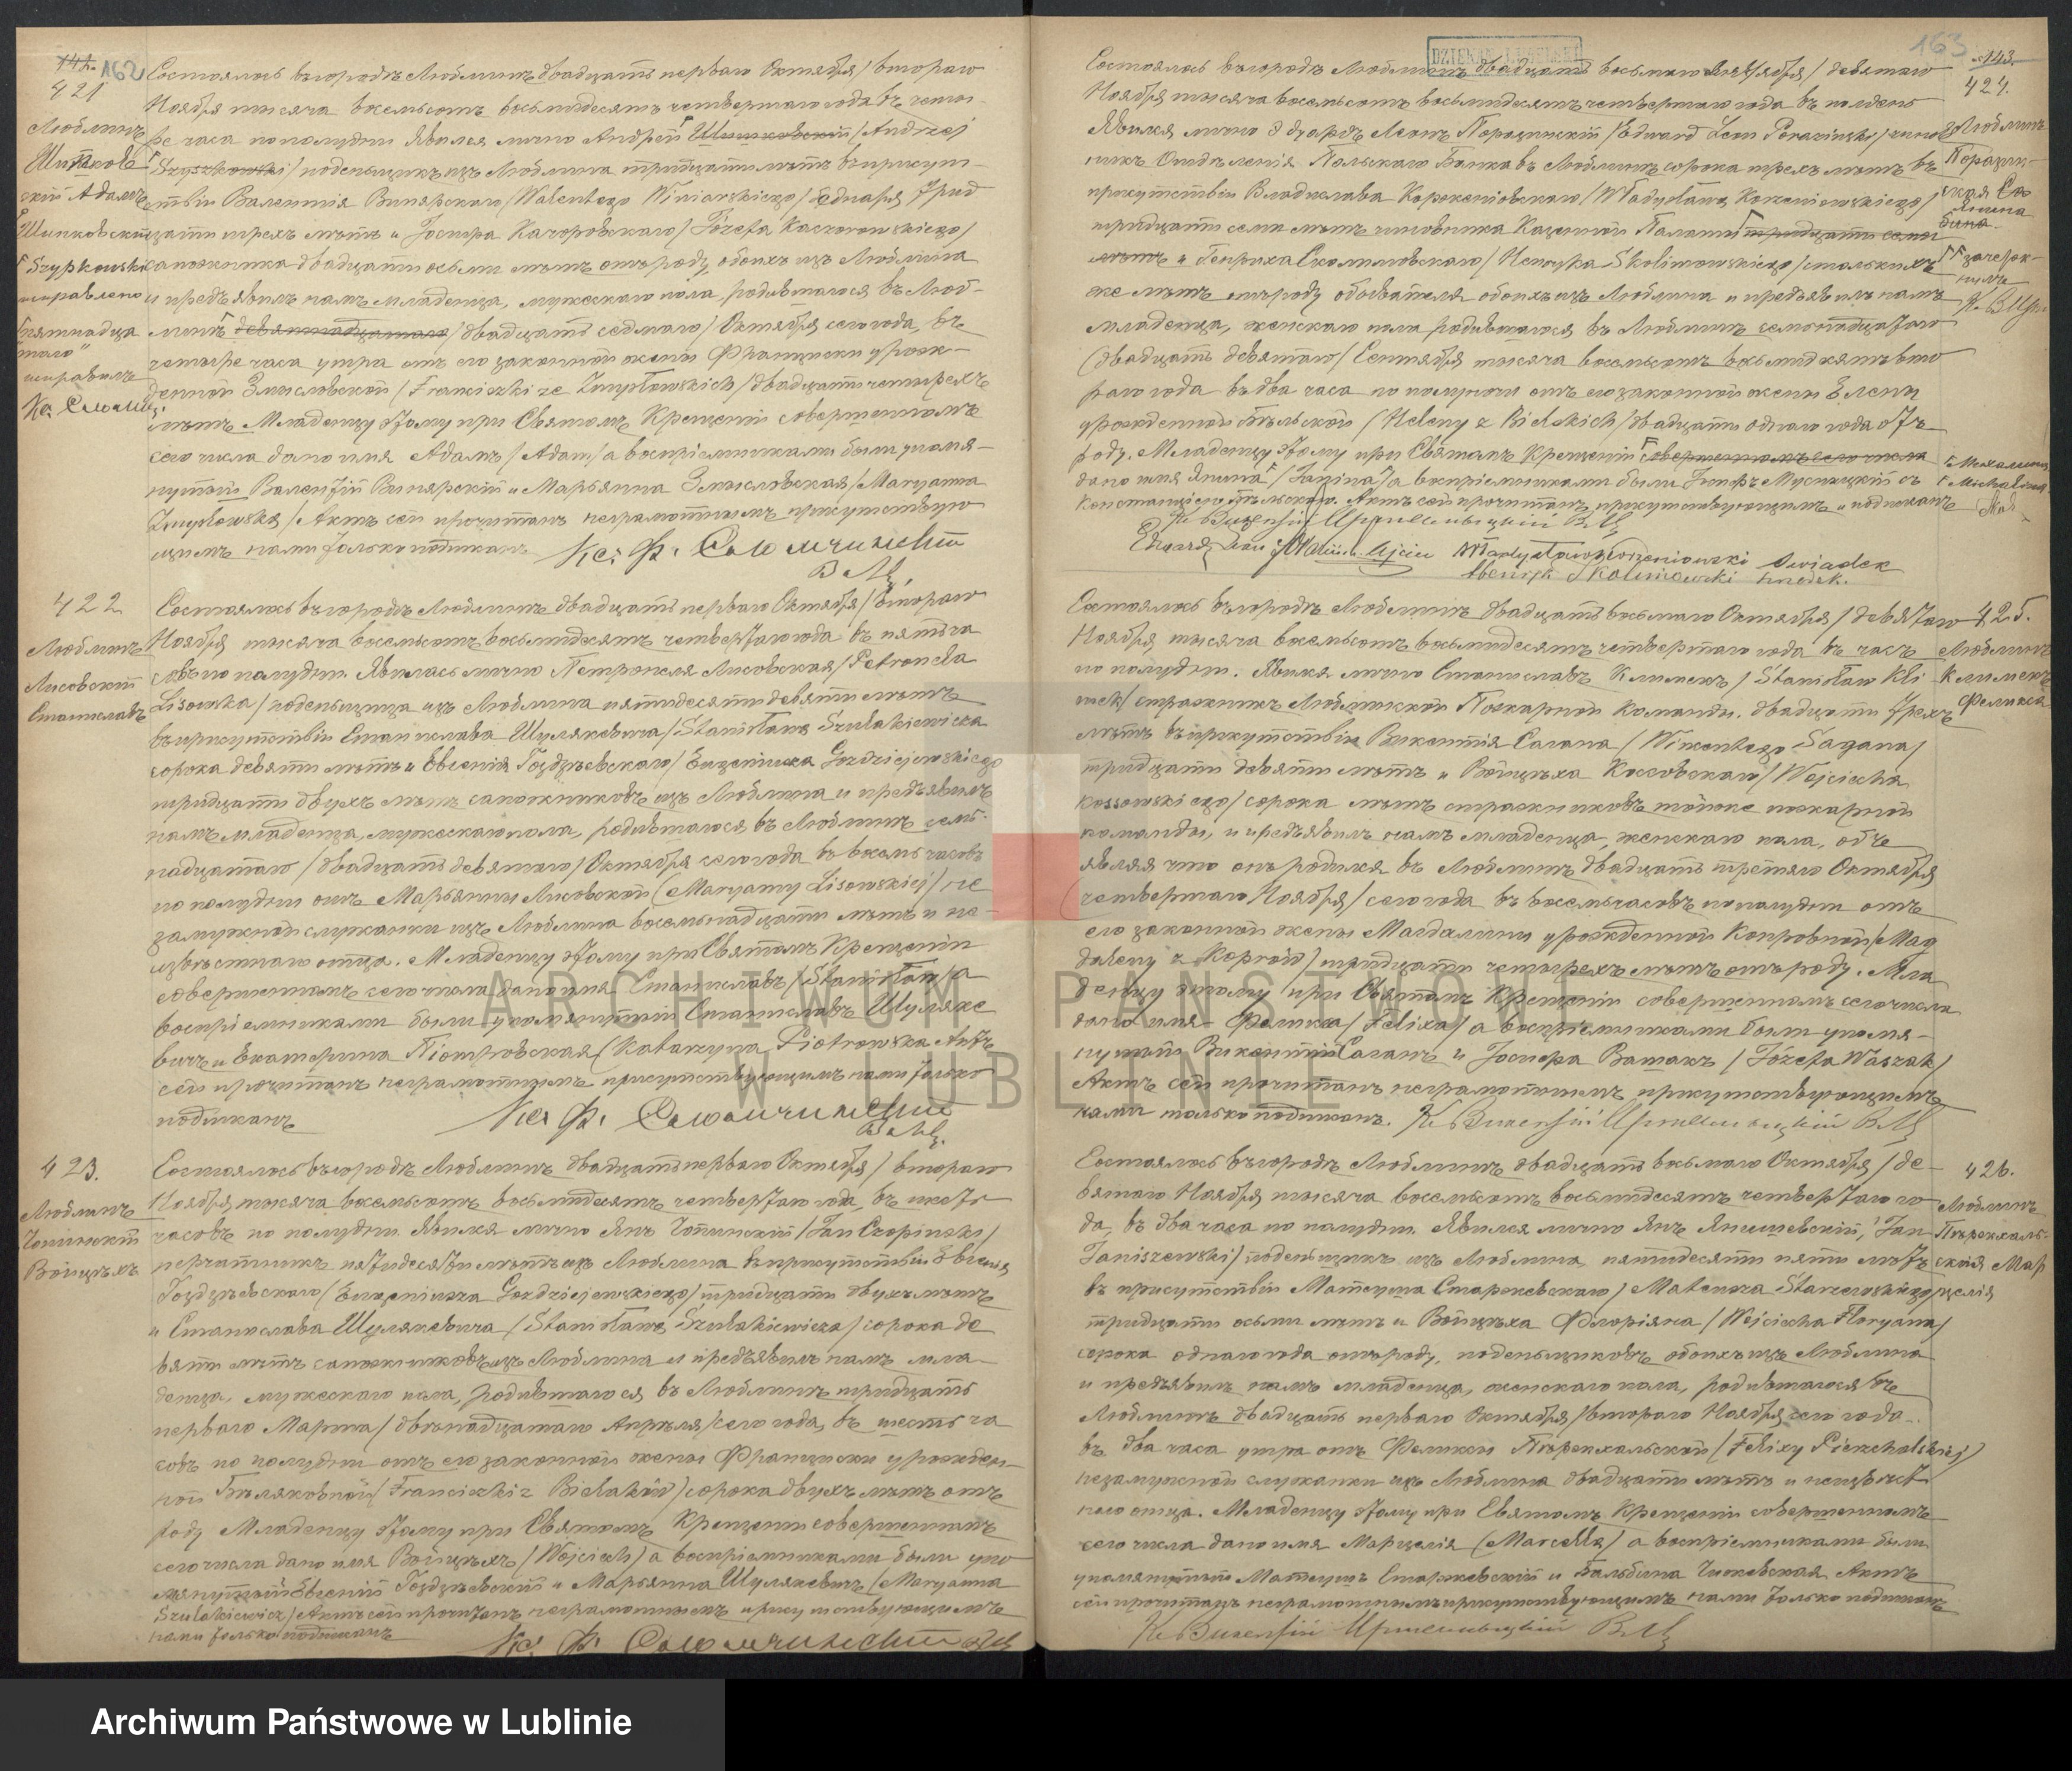 142. 162
421
Люблинъ
Шипков
скій Адамъ
Шипковскій
Szypkowski
исправлено
пятнадца
таго"
исправилъ
Кс. Солом
Состоялось въ городѣ Люблинѣ двадцать перваго Октября / втораго
Ноября тысяча восемьсотъ восемьдесятъ четвертаго года въ четы-
ре часа по полудни. Явился лично Андрей / Andrzej
поденьщикъ изъ Люблина тридцати лѣтъ въ присут-
ствіи Валентія Винярскаго / Walentego Winiarskiego / Трид
цати трехъ лѣтъ и Іосифа Качоровскаго / Józefa Kaczorowskiego /
сапожника двадцати осьми лѣтъ отъ роду, обоихъ изъ Люблина
и предъявилъ намъ младенца, мужескаго пола, родившагося въ Люб-
линѣ девятнадцатаго / двадцать седмаго / Октября сего года, въ
четыре часа утра отъ его законной жены Францишки урож-
денной Змысловской / Franciszki ze Zmysłowskich / двадцати четырехъ
лѣтъ. Младенцу этому при Святомъ Крещеніи совершенномъ
сего числа дано имя Адамъ / Adam / а воспріемниками были упомя-
нутый Валентій Винярскій и Марьянна Змысловская / Maryanna
Zmysłowska / Актъ сей прочитанъ неграмотнымъ присутствую
щимъ нами только подписанъ Кс. Ф. Соломчинскій
422
Люблинъ
Лисовскій
Станиславъ
Состоялось въ городѣ Люблинѣ двадцать перваго Октября / втораго
Ноября тысяча восемьсотъ восемьдесятъ четвертаго года въ пять ча
совъ по полудни. Явилась лично Петронеля Лисовская / Petronela
Lisowska / поденьщица изъ Люблина пятидесяти девяти лѣтъ
въ присутствіи Станислава Шулякевича / Stanisława Szulakiewicza
сорока девяти лѣтъ и Евгенія Гоздзѣевскаго / Eugeniusza Gozdziejewskiego
тридцати двухъ лѣтъ сапожниковъ изъ Люблина и предъявила
намъ младенца, мужескаго пола, родившагося въ Люблинѣ семь-
надцатаго / двадцать девятаго / Октября сего года въ восемь часовъ
по полудни отъ Марьянны Лисовской (Maryanny Lisowskiej) не
замужней служанки изъ Люблина восемьнадцати лѣтъ и не-
извѣстнаго отца. Младенцу этому при Святомъ Крещеніи
совершенномъ сего числа дано имя Станиславъ / Stanisław / а
воспріемниками были упомянутый Станиславъ Шуляке
вичъ и Екатерина Піотровская (Katarzyna Piotrowska Актъ
сей прочитанъ неграмотнымъ присутствующимъ нами только
подписанъ Кс. Ф. Соломчинскій
423.
Люблинъ
Чопинскій
Войцѣхъ
Состоялось въ городѣ Люблинѣ двадцать перваго Октября / втораго
Ноября тысяча восемьсотъ восемьдесятъ четвертаго года, въ шесть
часовъ по полудни. Явился лично Янъ Чопинскій / Jan Czopinski /
перчатникъ пятидесяти лѣтъ изъ Люблина въ присутствіи Евгенія
Гоздзѣевскаго (Eugeniusza Gozdziejewskiego) тридцати двухъ лѣтъ
и Станислава Шулякевича / Stanisława Szulakiewicza / сорока де
вяти лѣтъ сапожниковъ изъ Люблина и предъявилъ намъ мла
денца, мужескаго пола, родившагося въ Люблинѣ тридцать
перваго Марта / двѣнадцатаго Апрѣля / сего года, въ шесть ча
совъ по полудни отъ его законной жены Францишки урожден-
ной Бѣляковной / Franciszki z Bielaków) сорока двухъ лѣтъ отъ
роду. Младенцу этому при Святомъ Крещеніи совершенномъ
сего числа дано имя Войцѣхъ / Wojciech / а воспріемниками были упо
мянутый Евгеній Гоздзѣевскій и Марьянна Шулякевичъ / Maryanna
Szulakiewicz / Актъ сей прочитанъ неграмотнымъ присутствующимъ
нами только подписанъ Кс. Ф. Соломчинскій
163 143
424.
Люблинъ
Янина
зачерк-
Состоялось въ городѣ Люблинѣ двадцать восьмаго Октября / девятаго
Ноября тысяча восемьсотъ восемьдесятъ четвертаго года въ полдень
Явился лично Эдуардъ Леонъ Поразинскій / Edward Leon Poraziński / чинов
никъ Отдѣленія Польскаго Банка въ Люблинѣ сорока трехъ лѣтъ въ
присутствіи Владислава Корженіовскаго / Władysława Korzeniowskiego /
тридцати семи лѣтъ чиновника Казенной Палаты тридцати семи
лѣтъ и Генриха Сколимовскаго / Henryka Skolimowskiego / столькихъ
же лѣтъ отъ роду обывателя обоихъ изъ Люблина и предъявилъ намъ
младенца, женскаго пола родившагося въ Люблинѣ семьнадцатаго
(двадцать девятаго / Сентября тысяча восемьсотъ восемьдесятъ вто
раго года въ два часа по полуночи отъ его законной жены Елены
урожденной Бѣльской / Heleny z Bielskich / двадцати одного года отъ
роду. Младенцу этому при Святомъ Крещеніи совершенномъ сего числа
дано имя Янина / Janina / а воспріемниками были Іосифъ Мусницкій съ
Констанціею Бѣльскою. Актъ сей прочитанъ присутствующимъ и подписанъ
Edward Leon Ojciec Władysław Korzeniowski świadek
Henryk Skolimowski świadek.
425.
Люблинъ
Клименъ
Феликса
Состоялось въ городѣ Люблинѣ двадцать восьмаго Октября / девятаго
Ноября тысяча восемьсотъ восемьдесятъ четвертаго года въ часъ
по полудни. Явился лично Станиславъ Клименъ / Stanisław Kli
стражникъ Люблинской Пожарной Команды, двадцати трехъ
лѣтъ въ присутствіи Викентія Сагана / Wincentego Sagana /
тридцати девяти лѣтъ и Войцѣха Коссовскаго / Wojciecha
Kossowskiego / сорока лѣтъ стражниковъ тойже пожарной
команды, и предъявилъ намъ младенца, женскаго пола, объ
являя что онъ родился въ Люблинѣ двадцать третяго Октября
четвертаго Ноября / сего года въ восемь часовъ по полудни отъ
его законной жены Магдалины урожденной Копровной / Mag
daleny z Koprów / тридцати четырехъ лѣтъ отъ роду. Мла
денцу этому при Святомъ Крещеніи совершенномъ сего числа
дано имя Феликса / Felixa / а воспріемниками были упомя-
нутый Викентій Саганъ и Іосифа Вашакъ / Józefa Waszak /
Актъ сей прочитанъ неграмотнымъ присутствующимъ
нами только подписанъ.
426.
Люблинъ
Пѣрехаль
ская Мар
целія
Состоялось въ городѣ Люблинѣ двадцать восьмаго Октября / де-
вятаго Ноября тысяча восемьсотъ восемьдесятъ четвертаго го
да, въ два часа по полудни. Явился лично Янъ Янишевскій / Jan
Janiszewski / поденьщикъ изъ Люблина, пятидесяти пяти лѣтъ
въ присутствіи Матеуша Старжевскаго / Mateusza Starzewskiego
тридцати осьми лѣтъ и Войцѣха Флоріяна / Wojciecha Floryana /
сорока одного года отъ роду, поденьщиковъ обоихъ изъ Люблина
и предъявилъ намъ младенца, женскаго пола, родившагося въ
Люблинѣ двадцать перваго Октября / втораго Ноября сего года
въ два часа утра отъ Феликсы Пѣрехальской / Felixy Pierzchalskiej /
незамужней служанки изъ Люблина двадцати лѣтъ и неизвѣст
наго отца. Младенцу этому при Святомъ Крещеніи совершенномъ
сего числа дано имя Марцелія (Marcella) а воспріемниками были
упомянутый Матеушъ Старжевскій и Бальбина Чижевская. Актъ
сей прочитанъ неграмотнымъ присутствующимъ нами только подписанъ
ARCHIWUM PAŃSTWOWE
W LUBLINIE
Archiwum Państwowe w Lublinie